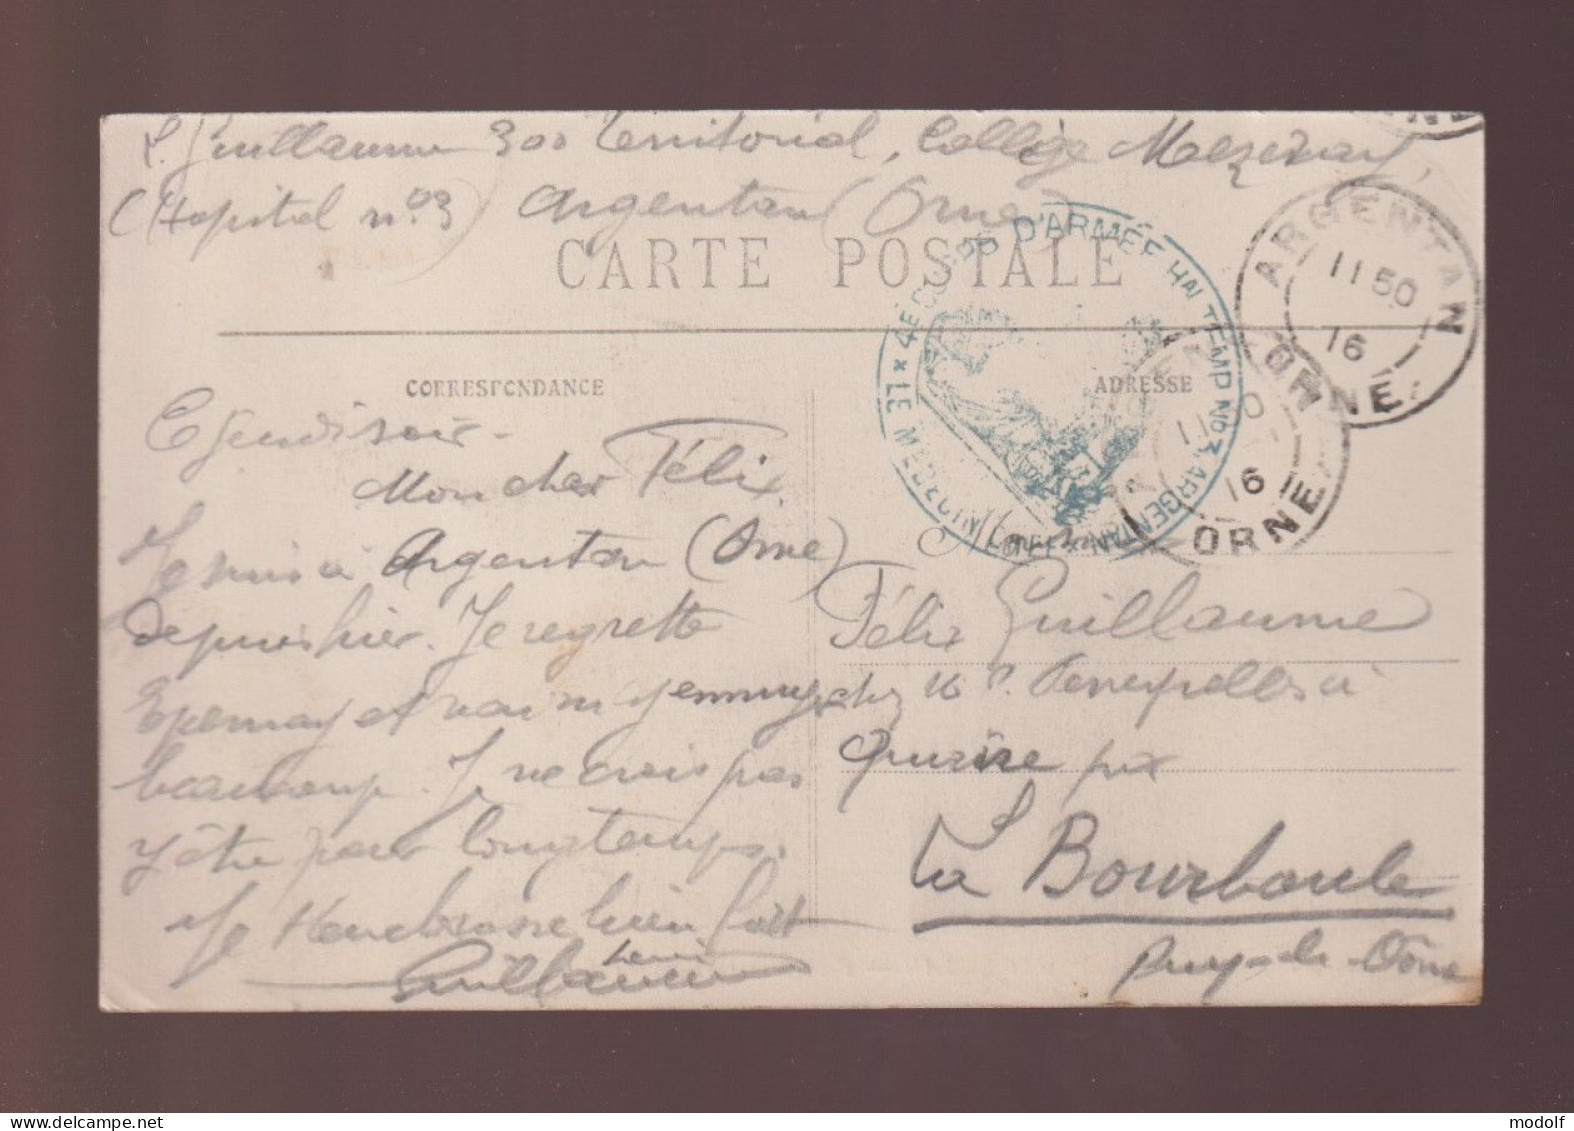 Guillaume 300 Territorial, Collège Mezeray,
(Hopital n°3) Argentan (Orne)
CARTE POSTALE
CORRESPONDANCE
ADRESSE
LE MEDECIN CHEF × 4E CORPS D'ARMÉE HAL TEMP No 3, ARGENTAN ×
ARGENTAN
11 50
16
ORNE
11 50
16
ORNE
Ce jeudi soir.
Mon cher Félix
Je suis à Argentan (Orne)
depuis hier. Je regrette
Epernay et vais m'y ennuyer
beaucoup. Je ne crois pas
y être pour longtemps.
Je t'embrasse bien fort
Guillaume
Félix Guillaume
chez
La Bourboule
Puy-de-Dôme
modolf